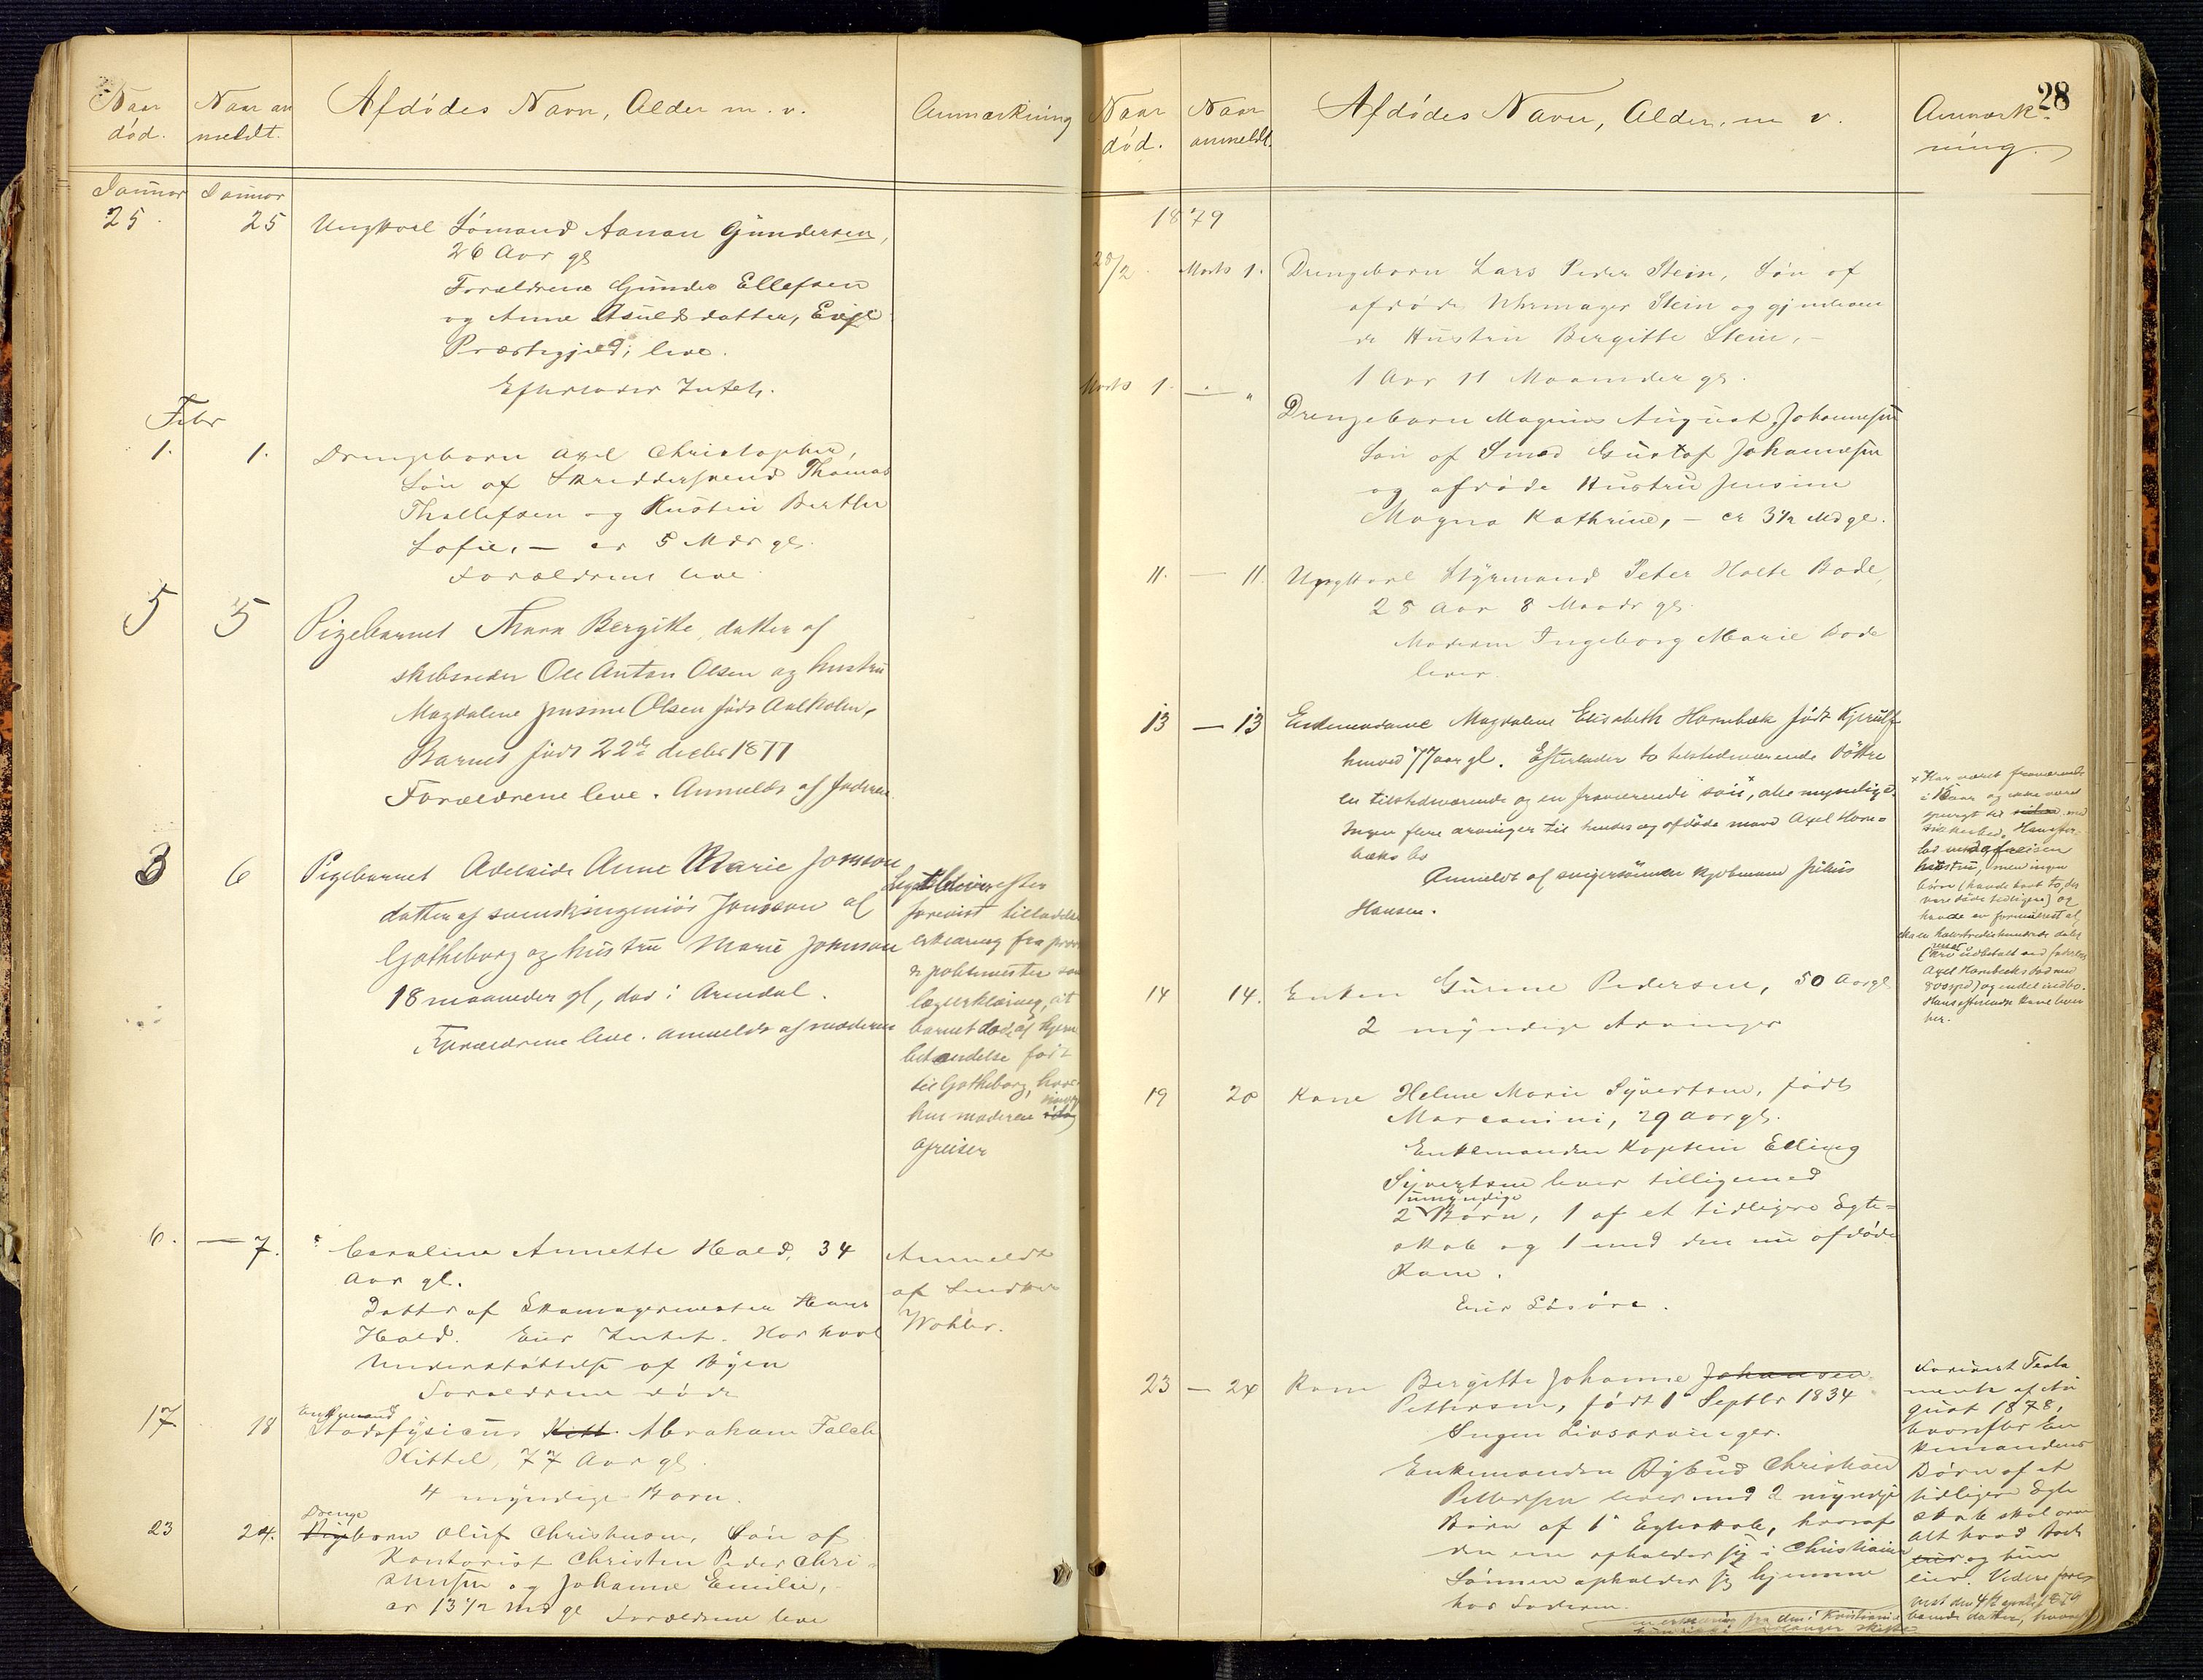 Naar død.
Naar anmeldt.
Afdødes Navn, Alder m. v.
Anmærkning
Januar
25.
Januar
25
Ungkarl Sømand Aanon Gundersen,
26 Aar gl
Forældrene Gunder Ellefsen
og Anne Asulds datter,
Præstegjeld; leve.
Efterlader Intet.
Febr
1.
1.
Drengebarn Axel Christopher,
Søn af Skreddersvend Thomas
Thellefsen og Hustru Berthe
Sofie, – er 5 Mdr gl.
Forældrene leve
5
5
Pigebarnet Thora Bergitte, datter af
skibsreder Ole Anton Olsen og hustru
Magdaline Jensine Olsen født Aalholm,
Barnet født 22de decbr 1877
Forældrene leve. Anmeldt af faderen
3
6
Pigebarnet Adelaide Anne Marie Jonsson
datter af svensk ingeniør Jonsson af
Gøtheborg og hustru Marie Jonsson
18 maaneder gl, død i Arendal.
Forældrene leve. anmeldt af moderen
Liget bliver efter
forevist tilladelse
erklæring fra
politimester
lægeerklæring, at
barnet døde af hjerne
betændelse ført
til Gøtheborg, hvor
hen moderen idag
afreiser
6.
— 7.
Caroline Annette Hald, 34
Aar gl.
Datter af Skomagermester Hans
Hald. Eier Intet. Har havt
Understøttelse af Byen
Forældrene døde
Anmeldt
af
Wøhler.
17
18
Enkemand
Stadsfysicus Kitt. Abraham Falch
Kittel, 77 Aar gl.
4 myndige Børn.
23
24.
Drenge
Pigebarn Oluf Christensen, Søn af
Kontorist Christen Peder Chri-
stensen og Johanne Emilie,
er 13 1/2 Md gl Forældrene leve
28
Naar død.
Naar anmeldt.
Afdødes Navn, Alder, m v.
Anmærk-
ning.
1879
28/2.
Marts 1.
Drengebarn Lars Peder Stein, Søn af
afdøde Uhrmager Stein og gjenleven
de Hustru Bergitte Stein, –
1 Aar 11 Maaneder gl.
Marts 1.
— "
Drengebarn Magnus August Johannesen
Søn af Smed Gustaf Johannesen
og afdøde Hustru Jensine
Magna Kathrine, – er 3 1/2 Md gl.
11. — 11.
Ungkarl Styrmand Peter Holte Bode,
28 Aar 8 Maaneder gl.
Moderen Ingeborg Marie Bode
lever.
13 — 13
Enkemadame Magdalene Elisabeth Hornbæk født Kjerulf
henved 77 aar gl. Efterlader to tilstedeværende døttre
en tilstedeværende og en fraværende søn ×, alle myndige.
Ingen flere arvinger til hendes og afdøde mand Axel Horn=
bæks bo
Anmeldt af svigersønnen kjøbmand Julius
Hansen.
× Har været fraværende
i aar og ikke været
spurgt til siden med
sikkerhed. Han
lod ved afreisen
hustru, men ingen
børn (havde havt to, der
vare døde tidligere) og
havde en
Axel Hornbecks
800 spd) og endel indbo.
Hans efterladte kone lever
her.
14
14.
Enken Gurine Pedersen, 50 Aar gl
2 myndige Arvinger
19
20
Kone Helene Marie Syvertsen, født
Marcanini, 29 Aar gl.
Enkemanden Kaptein Elling
Syvertsen lever tilligemed
umyndige
2 Børn, 1 af et tidligere Egte=
skab og 1 med den nu afdøde
Kone.
Eier Løsøre.
23 — 24
Kone Bergitte Johanne Johansen
Pettersen, født 1 Septbr 1834
Ingen Livsarvinger.
Enkemanden Bybud Christian
Pettersen lever med 2 myndige
Børn af 1 Egteskab, hvoraf
den ene opholder sig i Christiania
Sønnen opholder sig hjemme
hos Faderen.
Forevist Testa
mente af Au
gust 1878,
hvorefter En
kemandens
Børn af et
tidligere Egte
skab skal arve
alt hvad
eier og hun
eier. Videre fore
vist den 4de april 1879
en erklæring fra den i Kristiania
boende datter,